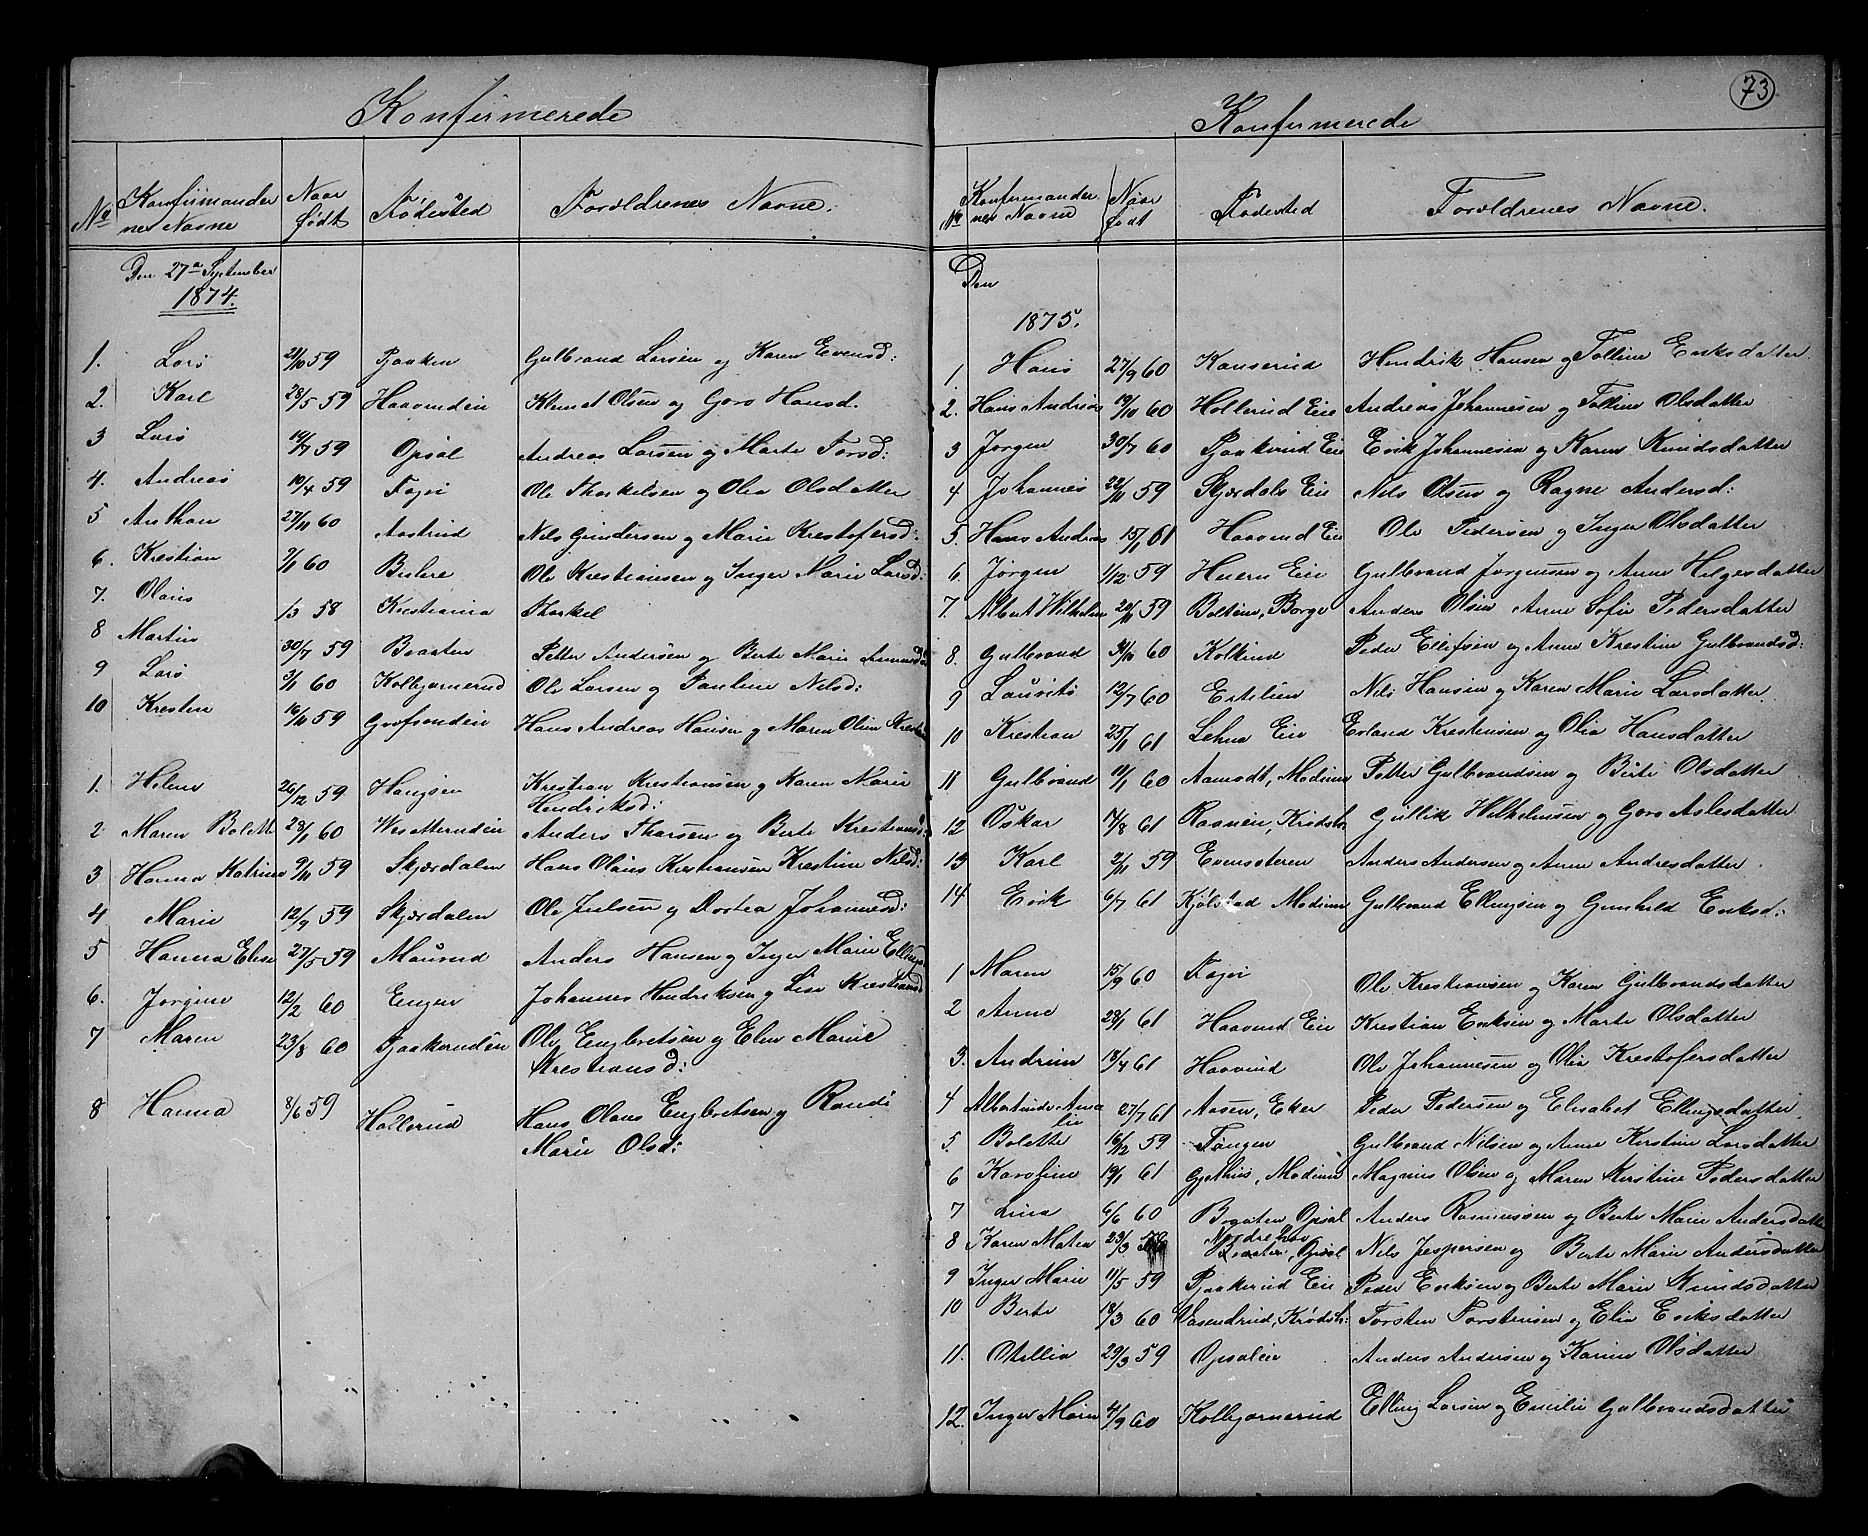 Konfirmerede
No Konfirmandernes Navne Naar født Fødested Forældrenes Navne.
Den 27de September
1874.
1. Lars 21/10 59 Gulbrand Larsen og Karen Evensd:
2. Karl 28/5 59 Haavruden Klemet Olsen og Goro Hansd.
3 Lars 19/7 59 Opsal Andreas Larsen og Marte Torsd:
4. Andreas 19/4 59 Foss Ole Thorkelsen og Olea Olsdatter
5 Anthon 27/11 60 Aastrud Nils Gundersen og Marie Krestofersd:
6. Krestian 2/1 60 Ole Krestiansen og Inger Marie Larsd:
7. Olaus 1/3 58 Kristiania Thorkel
8 Martin 30/7 59 Braaten Petter Andersen og Berte Marie
9 Lars 3/1 60 Kolbjørnerud Ole Larsen og Pauline Nilsd:
10 Kresten 16/11 59 Hans Andreas Hansen og Maren Oline
1. Helene 26/12 59 Haugsen Krestian Krestiansen og Karen Marie
Hendriksd:
2 Maren Bolette 28/1 60 Anders Tharsen og Berte Krestiansd:
3 Hanna Katrine 9/11 59 Skjærdalen Hans Olaus Krestiansen Krestine Nilsd:
4 Marie 12/9 59 Skjærdalen Ole Julsen og Dortea Johannesd:
5 Hanna Elise 27/5 59 Anders Hansen og Inger Marie Ellingsd
6. Jørgine 12/2 60 Engen Johannes Hendriksen og Lise Krestiansd
7 Maren 23/8 60 Gjaakeruden Ole Engbretsen og Elen Marie
Krestiansd:
8 Hanna 8/6 59 Hollerud Hans Olaus Engbretsen og Randi
Marie Olsd:
73
Konfirmerede
No Konfirmandernes Navne Naar født Fødested Forældrenes Navne.
Den
1875.
1 Hans 27/9 60 Hendrik Hansen og Talline Eriksdatter
2. Hans Andreas 19/10 60 Hollerud Eie Andreas Johannesen og Talline Olsdatter
3 Jørgen 30/7 60 Gjaakerud Eie Erik Johannesen og Karen Knudsdatter
4 Johannes 22/11 59 Skjærdals Eie Nils Olsen og Ragne Andersd:
5. Hans Andreas 15/1 61 Haavrud Eie Ole Pedersen og Inger Olsdatter
6. Jørgen 1/12 59 Hvern Eie Gulbrand Jørgensen og Anne Helgesdatter
7. Albert Wilhelm 20/11 59 Borge Anders Olsen Anne Sofie Pedersdatter
8. Gulbrand 31/10 60 Kolkind Peder Ellifsen og Anne Krestine Gulbrandsd:
9 Lauritz 12/7 60 Nils Hansen og Karen Marie Larsdatter
10 Krestian 25/1 61 Lehna Eie Erland Krestensen og Olia Hansdatter
11 Gulbrand 11/1 60 Aamodt, Modum Petter Gulbrandsen og Berte Olsdatter
12 Oskar 7/8 61 Krødsh. Gullik Wilhelmsen og Goro Aslesdatter
13 Karl 2/11 59 Evensteren Anders Andersen og Anne Andresdatter
14 Erik 6/7 61 Kjølstad Modum Gulbrand Ellingsen og Gunhild Eriksd:
1 Maren 15/9 60 Foss Ole Krestiansen og Karen Gulbrandsdatter
2 Anne 28/1 61 Haavrud Eie Kristian Eriksen og Marte Olsdatter
3. Andrine 18/4 61 Haavrud Ole Johannesen og Olia Krestofersdatter
4 Albertine Amalie 27/7 61 Aasen, Eker Peder Pedersen og Elisabet Ellingsdatter
5. Bolette 16/12 59 Tangen Gulbrand Nilsen og Anne Kirstine Larsdatter
6 Karoline 19/1 61 Gjethus, Modum Magnus Olsen og Maren Kirstine Pedersdatter
7 Lina 6/6 60 Opsal Anders Rasmussen og Berte Marie Andersdatter
8 Karen Matea 23/3 Nordre Braaten, Opsal Nils Jespersen og Berte Marie Andersdatter
9 Inger Marie 11/5 59 Gjaakerud Eie Peder Eriksen og Berte Marie Knudsdatter
10 Berte 18/3 60 Vasendrud, Krødsh: Torsten Torstensen og Elia Eriksdatter
11. Otellia 29/3 59 Opsaleie Anders Andersen og Karine Olsdatter
12. Inger Marie 4/9 60 Kolbjørnerud Elling Larsen og Emilie Gulbrandsdatter